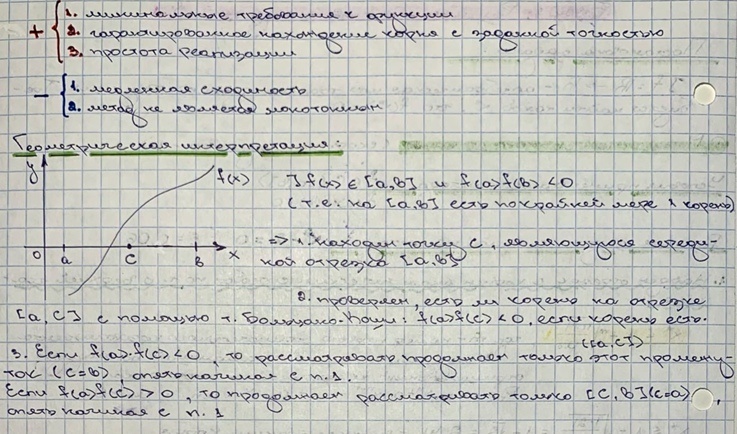 + 1. минимальные требования к функции
2. гарантированное нахождение корня с заданной точностью
3. простота реализации
- 1. медленная сходимость
2. метод не является монотонным
Геометрическая интерпретация:
y
f(x)
0 a c в x
] f(x) ∈ [a,в] и f(a)f(в) < 0
(т.е. на [a,в] есть по крайней мере 1 корень)
=> 1. находим точку c, являющуюся середи-
ной отрезка [a,в]
2. проверяем, есть ли корень на отрезке
[a,c] с помощью т. Больцано-Коши: f(a)f(c)<0, если корень есть.
([a,c])
3. Если f(a)·f(c)<0, то рассматривать продолжаем только этот промежу-
ток (c=в), опять начиная с п.1.
Если f(a)f(c)>0, то продолжаем рассматривать только [c,в](c=a),
опять начиная с п. 1